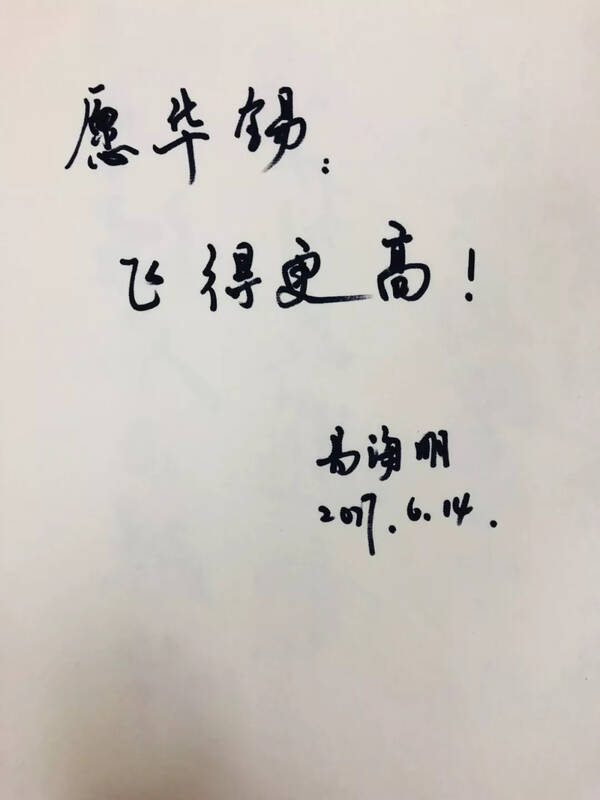 愿华锡:
飞得更高!
高海明
2017.6.14.